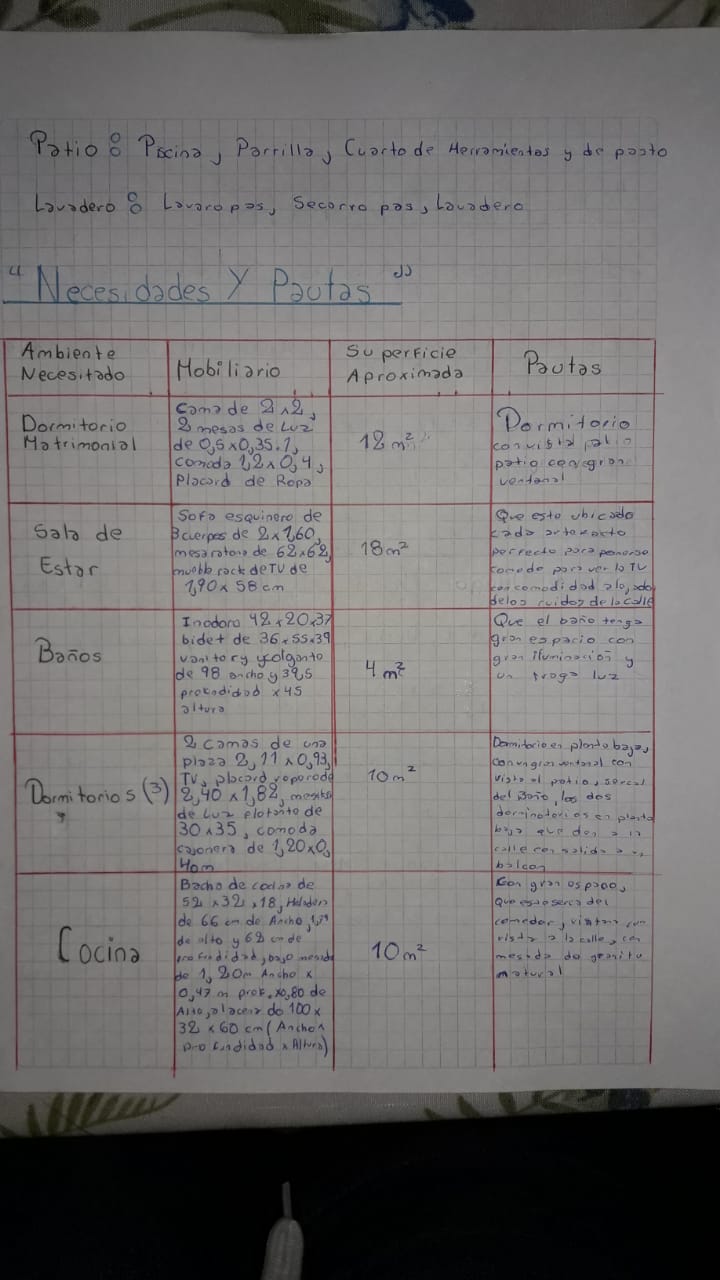 Patio: Piscina, Parrilla, Cuarto de Herramientas y de pasto
Lavadero: Lavaropas, Secorropas, Lavadero
"Necesidades Y Pautas"
Ambiente
Necesitado
Mobiliario
Superficie
Aproximada
Pautas
Dormitorio
Matrimonial
Cama de 2x2,
2 mesas de Luz
de 0,5x0,35.1,
comoda 1,2x0,4,
Placard de Ropa
12 m²
Dormitorio
con vista patio
patio con gran
ventanal
Sala de
Estar
Sofa esquinero de
3 cuerpos de 2x1,60,
mesa ratona de 62x62,
mueble rack de TV de
1,90x58 cm
18 m²
Que este ubicado
perfecto para ponerse
comodo para ver la TV
con comodidad alejado
de los ruidos de la calle
Baños
Inodoro 42x20x37
bidet de 36x55x39
vanitory colgante
de 98 ancho y 39,5
profundidad x45
altura
4 m²
Que el baño tenga
gran espacio con
gran iluminacion y
un traga luz
Dormitorios (3)
2 camas de una
plaza 2,11x0,93,
TV, placard roperode
2,40x1,82, mesita
de Luz flotante de
30x35, comoda
cajonera de 1,20x0,
40m
10 m²
Dormitorio en planta baja,
con vista al patio, serca
del Baño, los dos
dormitorios en planta
baja que den a la
calle con salida a
balcon
Cocina
Bacha de cocina de
52x32x18, Heladera
de 66 cm de Ancho,
de alto y 62 cm de
profundidad, bajo mesada
de 1,20m Ancho x
0,47 m prof. x0,80 de
Alto, alacena de 100x
32x60 cm (Ancho x
profundidad x Altura)
10 m²
Con gran espacio,
Que este serca del
comedor, con
vista a la calle, con
mesada de granito
natural